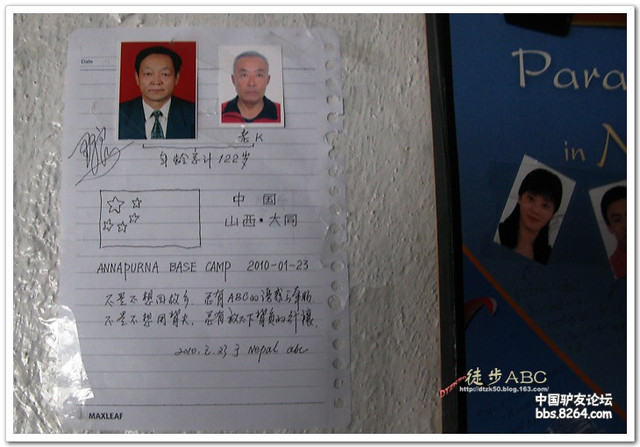 Date
老K
年龄累计122岁
中国
山西·大同
ANNAPURNA BASE CAMP 2010-01-23
不是不想回故乡,还有ABC的诱惑与牵肠
不是不想闭背夫,还有放不下背负的行囊.
于 Nepal abc
MAXLEAF
Para
in N
徒步ABC
http://dtzk50.blog.163.com/
中国驴友论坛
bbs.8264.com